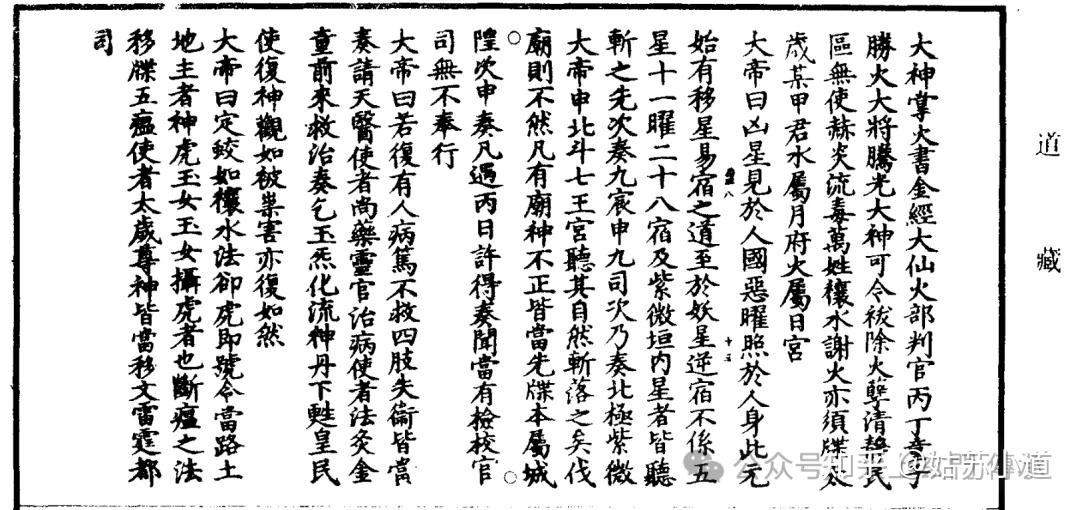 道藏
大神掌火書金經大仙火部判官丙丁童子
勝火大將騰光大神可令祓除火孽清靜民
區無使赫炎流毒萬姓禳水謝火亦須牒太
歲某甲君水屬月府火屬日宮
大帝曰凶星見於人國惡曜照於人身此元
始有移星易宿之道至於妖星逆宿不係五
星十一曜二十八宿及紫微垣內星者皆聽
斬之先次奏九宸申九司次乃奏北極紫微
大帝申北斗七王宮聽其自然斬落之矣伐
廟則不然凡有廟神不正皆當先牒本屬城
隍次申奏凡遇丙日許得奏聞當有檢校官
司無不奉行
大帝曰若復有人病篤不救四肢失衛皆當
奏請天醫使者尚藥靈官治病使者法灸金
童前來救治奏乞玉炁化流神丹下甦皇民
使復神觀如被祟害亦復如然
大帝曰定蛟如禳水法卻虎即號令當路土
地主者神虎玉女玉女攝虎者也斷瘟之法
移牒五瘟使者太歲尊神皆當移文雷霆都
司
公众号 姑苏傳道
知乎